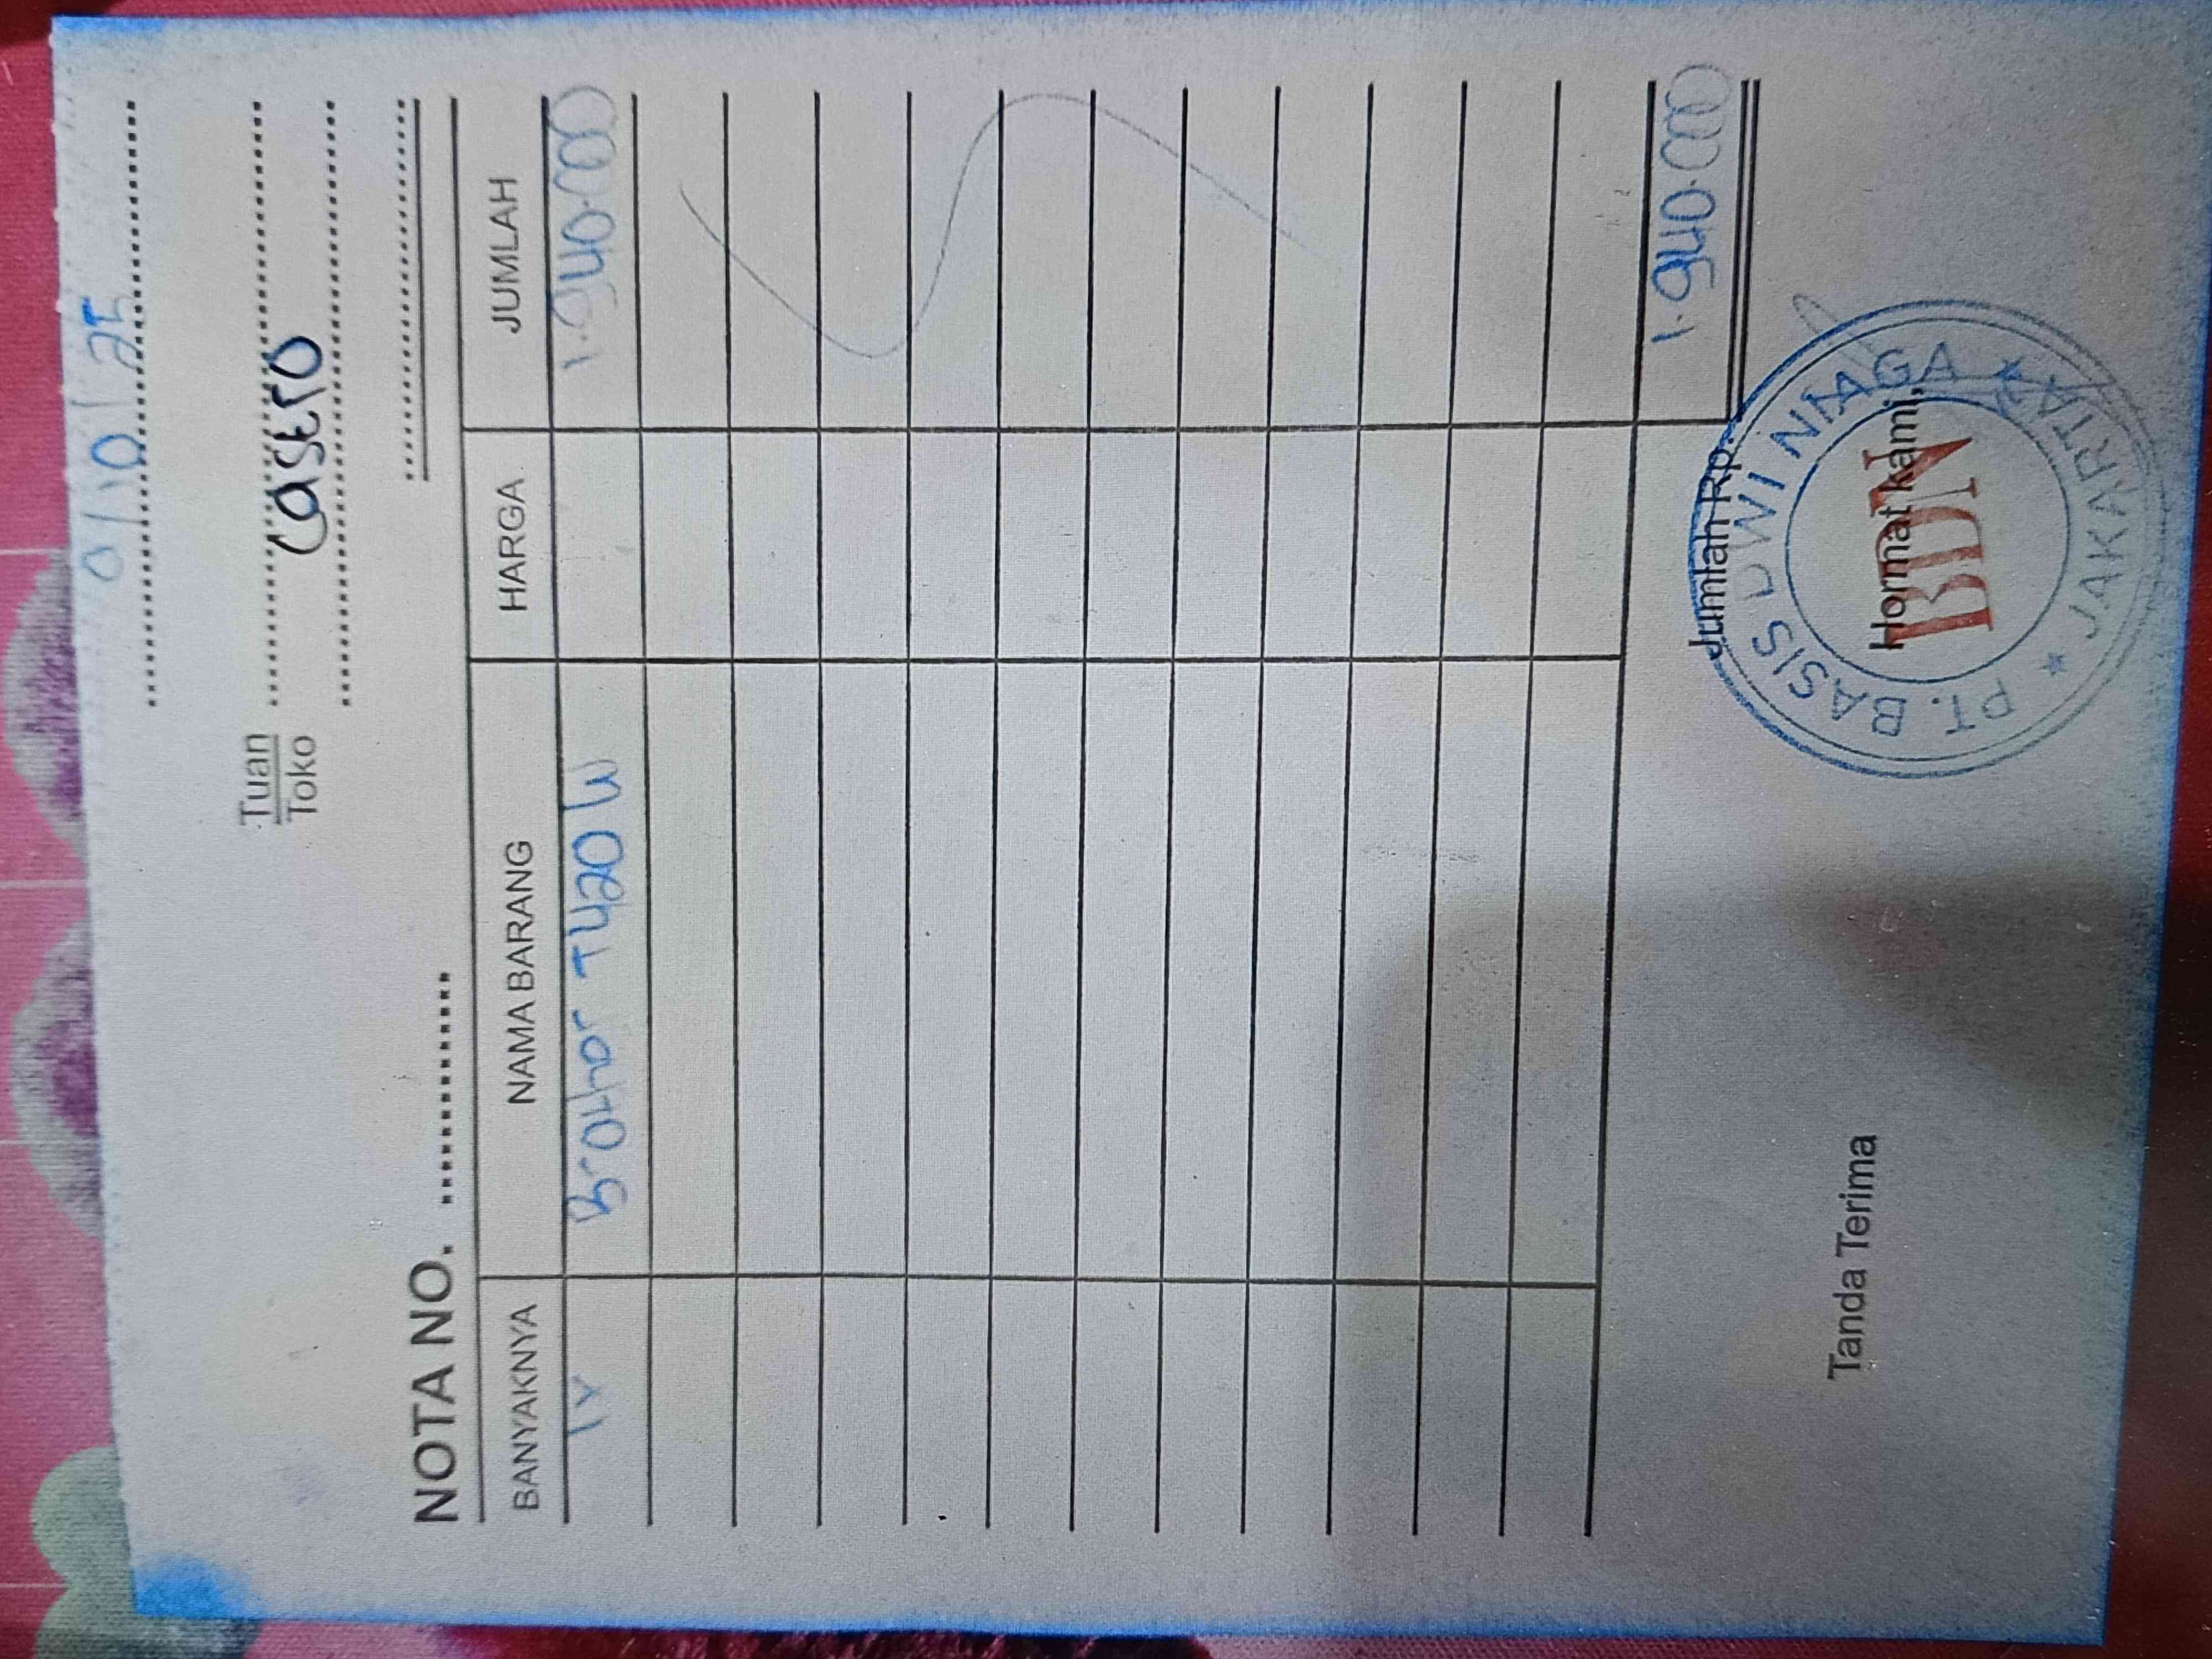 0/10/25
Tuan
Toko
Casero
NOTA NO.
BANYAKNYA NAMA BARANG HARGA JUMLAH
1 Brother T420 W 1.940.000
Jumlah Rp. 1.940.000
Tanda Terima Hormat kami,
PT. BASIS DWI NIAGA
BDN
JAKARTA